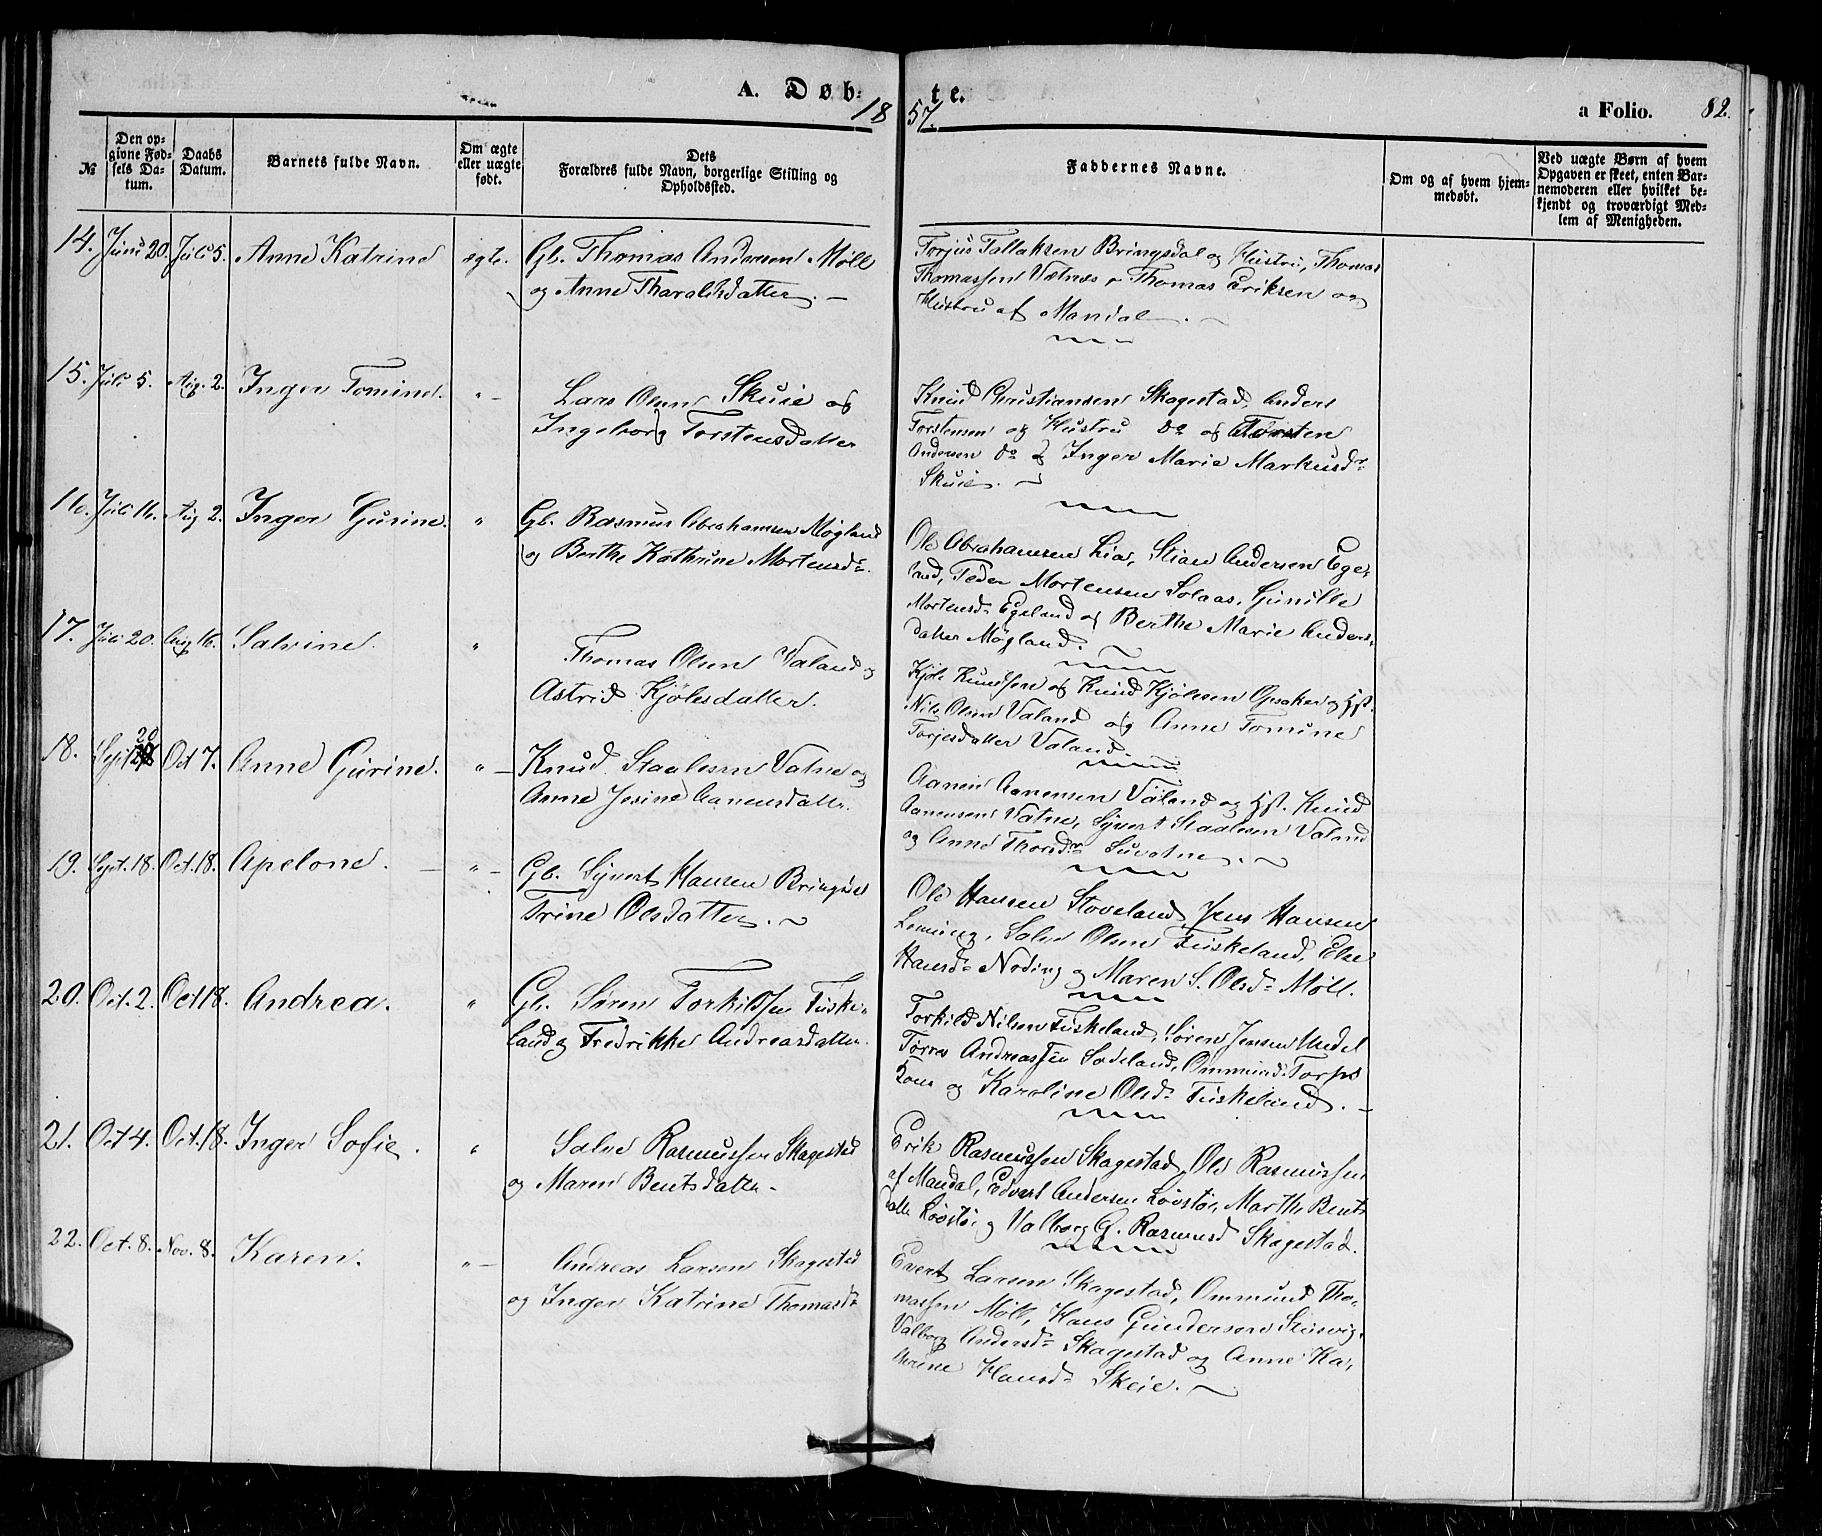 A. Døb-
te.
1857.
a Folio. 82.
№
Den op-
givne Fød-
sels Da-
tum.
Daabs
Datum.
Barnets fulde Navn.
Om ægte
eller uægte
født.
Dets
Forældres fulde Navn, borgerlige Stilling og
Opholdssted.
Faddernes Navne.
Om og af hvem hjem-
medøbt.
Ved uægte Børn af hvem
Opgaven er skeet, enten Bar-
nemoderen eller hvilket be-
kjendt og troværdigt Med-
lem af Menigheden.
14. Juni 20. Juli 5. Anne Katrine ægte. Gb. Thomas Andersen Møll
og Anne Tharaldsdatter. –
Torjus Tallaksen Bringsdal og Hustru, Thomas
Thomassen Vatnes o Thomas Eriksen og
Hustru af Mandal.
15. Juli 5. Aug. 2. Inger Tomine. " – Lars Olsen Skuie og
Ingeborg Torstensdatter
Knud Christiansen Skagestad, Anders
Torstensen og Hustru do og Torsten
Andersen do & Inger Marie Markusdr
Skuie.
16. Juli 16. Aug 2. Inger Gurine. " Gb. Rasmus Abrahamsen Møgland
og Berthe Kathrine Mortensdr.
Ole Abrahamsen Lia, Stian Andersen Ege-
land, Peder Mortensen Solaas, Gunille
Mortensdr Egeland og Berthe Marie Anders-
datter Møgland.
17. Juli 20. Aug 16. Salvine. " Thomas Olsen Valand og
Astrid Kjølesdatter.
Kjøle Knudsen og Knud Kjølesen Opsaker og Hst.
Nils Olsen Valand og Anne Tomine
Torjesdatter Valand.
18. Sept 20 Oct 7. Anne Gurine. " – Knud Staalesen Vatne og
Anne Jesine Aanensdatter.
Aanen Aanensen Valand og Hst. Knud
Aanensen Vatne, Syvert Staalesen Valand
og Anne Thorsdr Suvatne.
19. Sept. 18. Oct. 18. Apelone. – " – Gb. Syvert Hansen Bringsdal
Trine Olsdatter.
Ole Hansen Stoveland, Jens Hansen
Lønning, Salve Olsen Fuskeland, Else
Hansdr Noding og Maren S. Olsdr Møll.
20. Oct. 2. Oct 18. Andrea. " Gb. Søren Torkildsen Fuske-
land og Fredrikke Andreasdatter.
Torkild Nilsen Fuskeland, Søren Jensen Medel
Torres Andreassen Sodeland, Ommund Torps
Kone og Karoline Olsdr Fuskeland. –
21. Oct 4. Oct. 18. Inger Sofie. " Salve Rasmussen Skagestad
og Maren Bentsdatter –
Erik Rasmussen Skagestad, Ole Rasmussen
af Mandal, Edvart Andersen Løvstø, Marthe Bents
datter Løvstø, og Valborg G. Rasmusd Skagestad.
22. Oct. 8. Nov. 8. Karen. " – Andreas Larsen Skagestad
og Inger Katrine Thomasdr
Evert Larsen Skagestad, Ommund Tho-
massen Møll, Hans Gundersen
Valborg Andersdr Skagestad og Anne Ka-
thrine Hansdr Skeie.